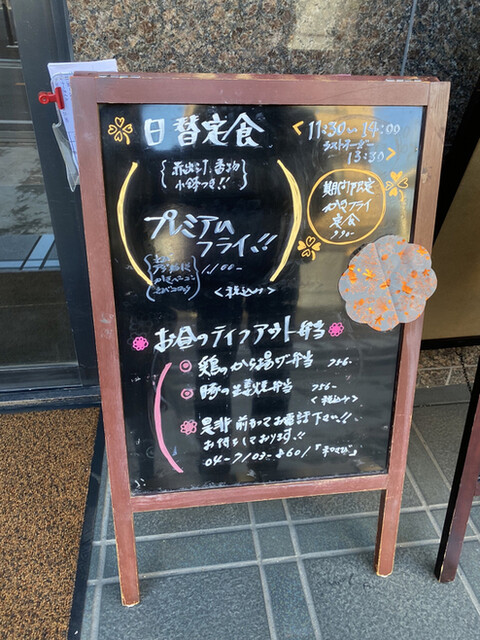 日替定食
<11:30~14:00
ラストオーダー
13:30>
赤出汁、香物
小鉢つき!!
プレミアム
フライ!!
1,100-
<税込み>
期間限定
わかさフライ
定食
990-
お昼のテイクアウト弁当
鶏のから揚げ弁当 756-
豚の生姜焼弁当 756-
<税込み>
是非前もってお電話下さい!!
お待ちしております!!
04-7103-8601